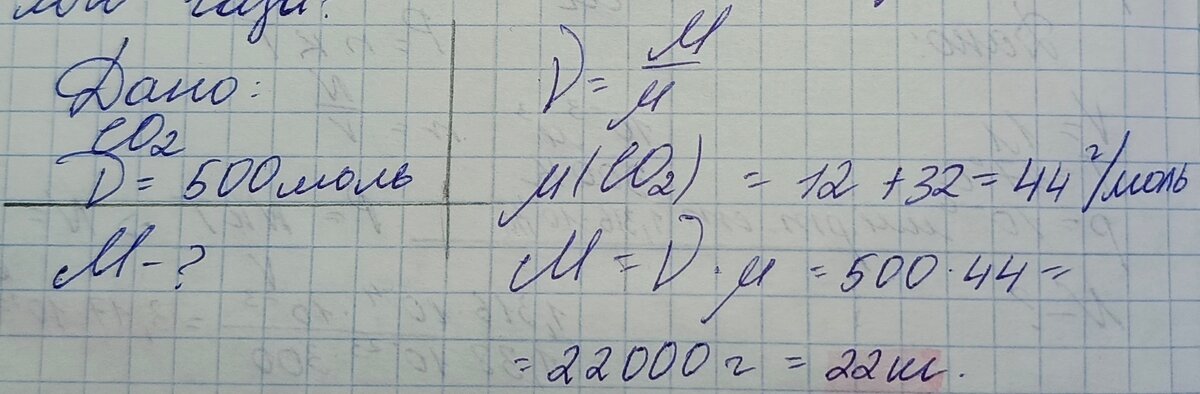 газа?
Дано:
CO₂
ν = 500 моль
M - ?
ν = M/μ
μ(CO₂) = 12 + 32 = 44 г/моль
M = ν · μ = 500 · 44 =
= 22000 г = 22 кг.